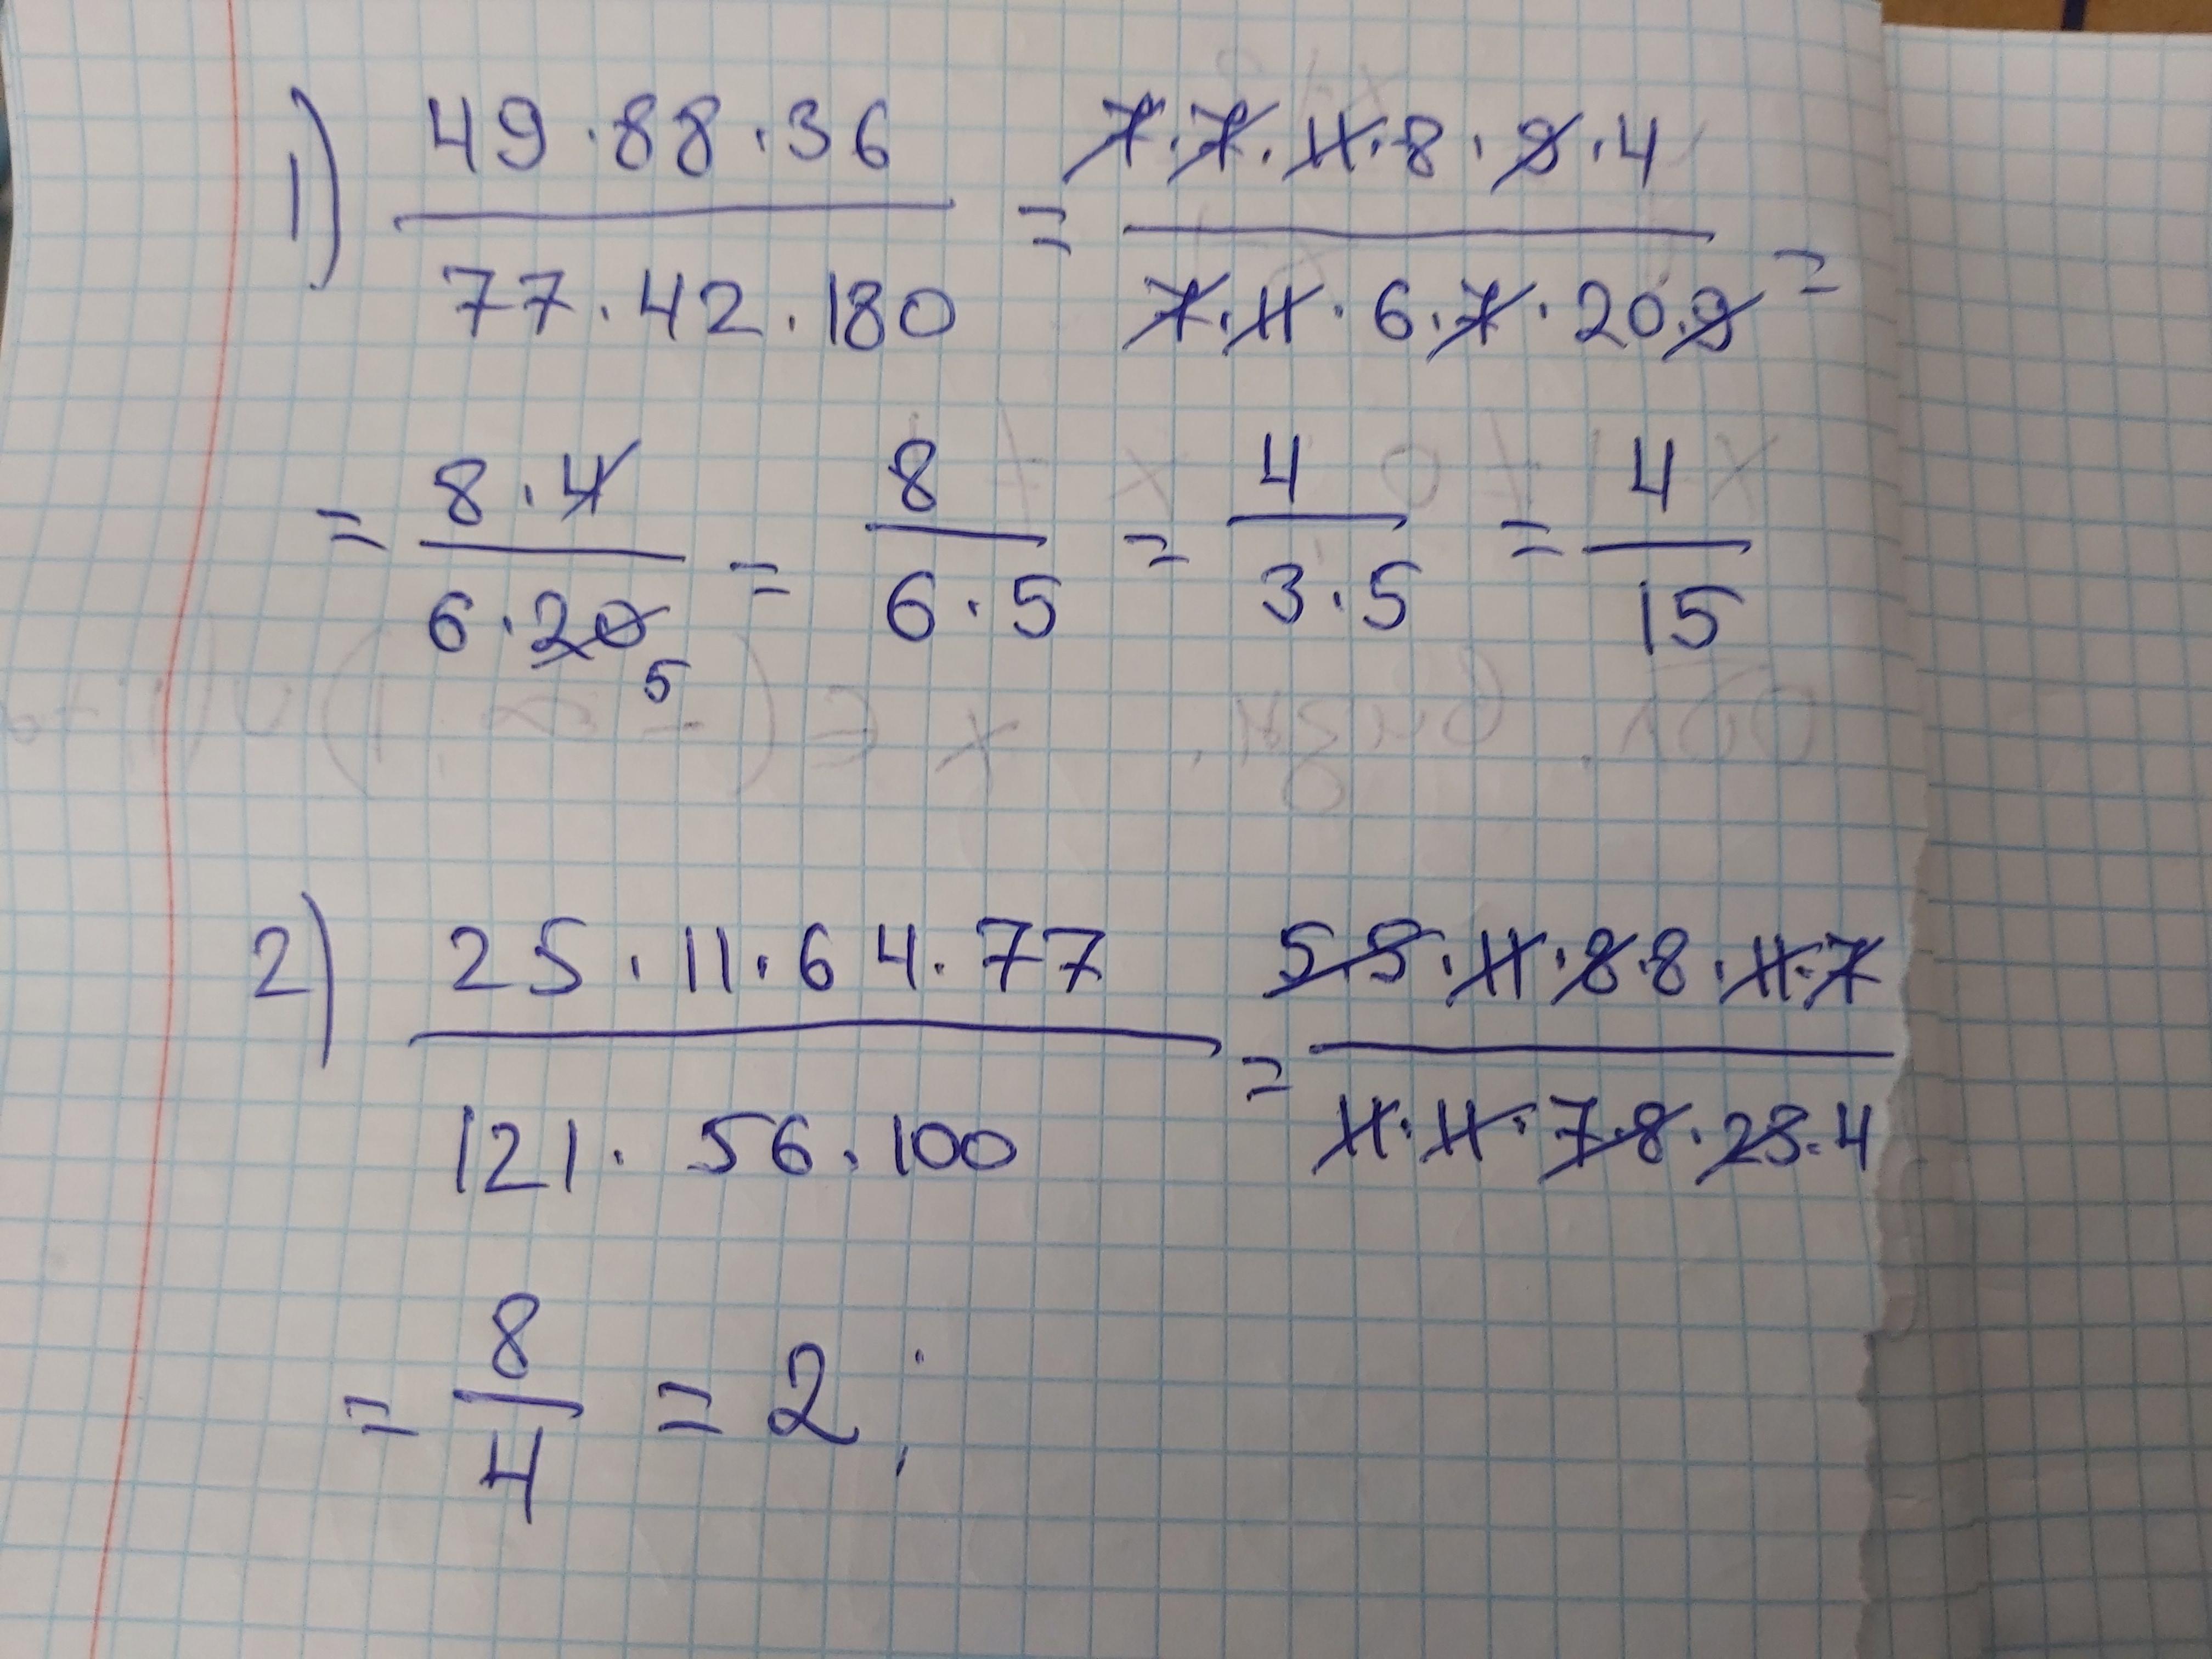 1) 49·88·36 / 77·42·180 = 7·7·11·8·9·4 / 7·11·6·7·20·9 =
= 8·4 / 6·20 5 = 8 / 6·5 = 4 / 3·5 = 4 / 15
2) 25·11·64·77 / 121·56·100 = 5·5·11·8·8·11·7 / 11·11·7·8·25·4
= 8 / 4 = 2;